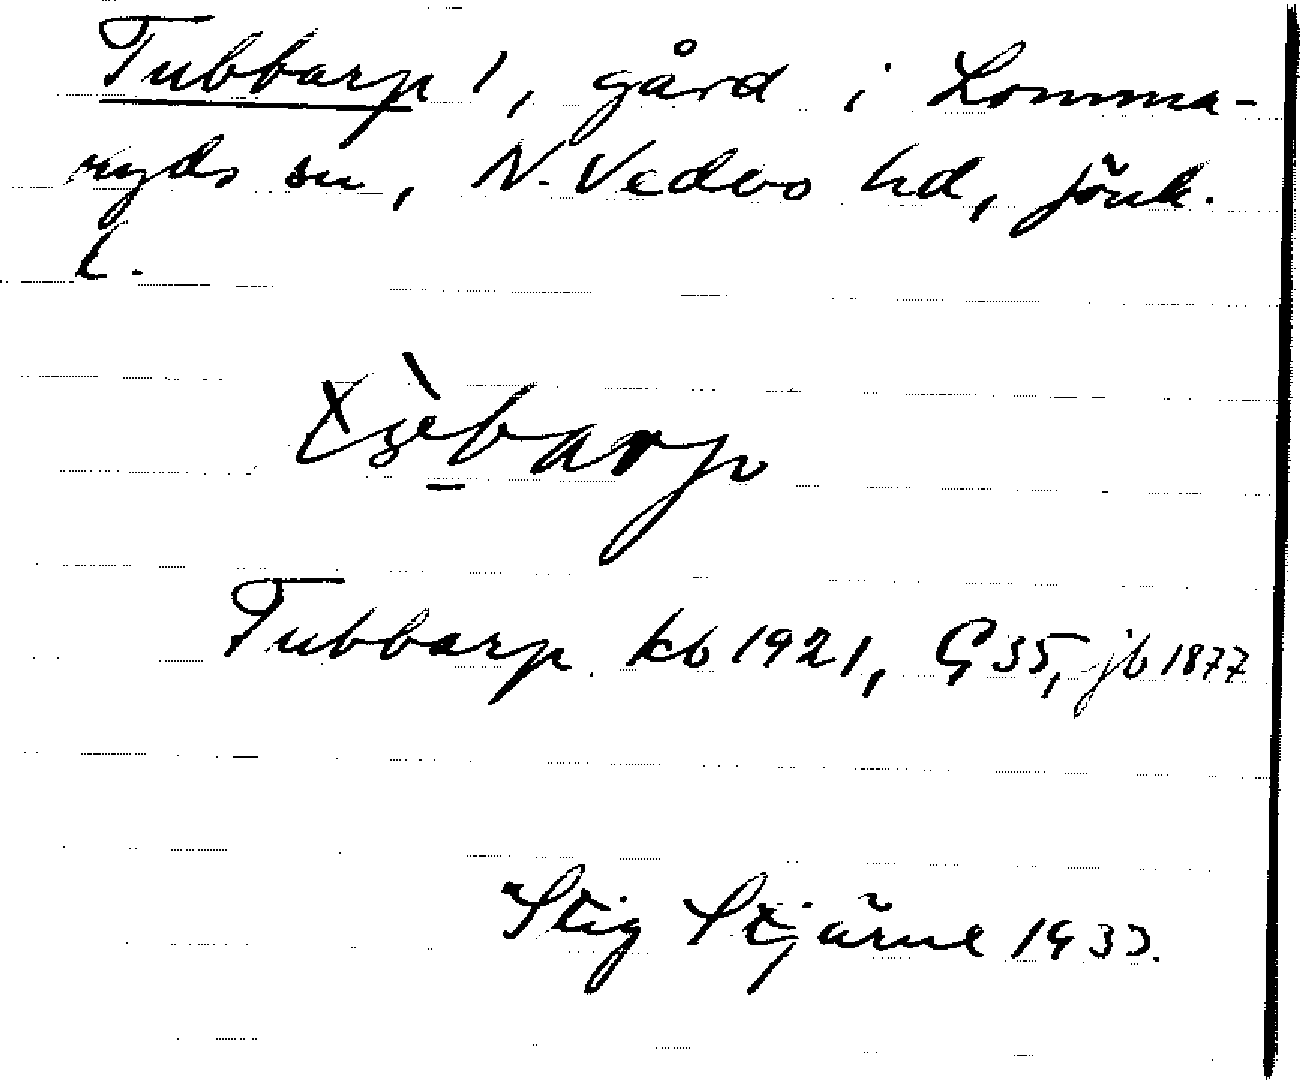 Tubbarp 1, gård i Lomma-
ryds sn, N. Vedbo hd, Jönk.
l.
Tubbarp kb 1921, G 35, jb 1877
Stig Stjärne 1933.